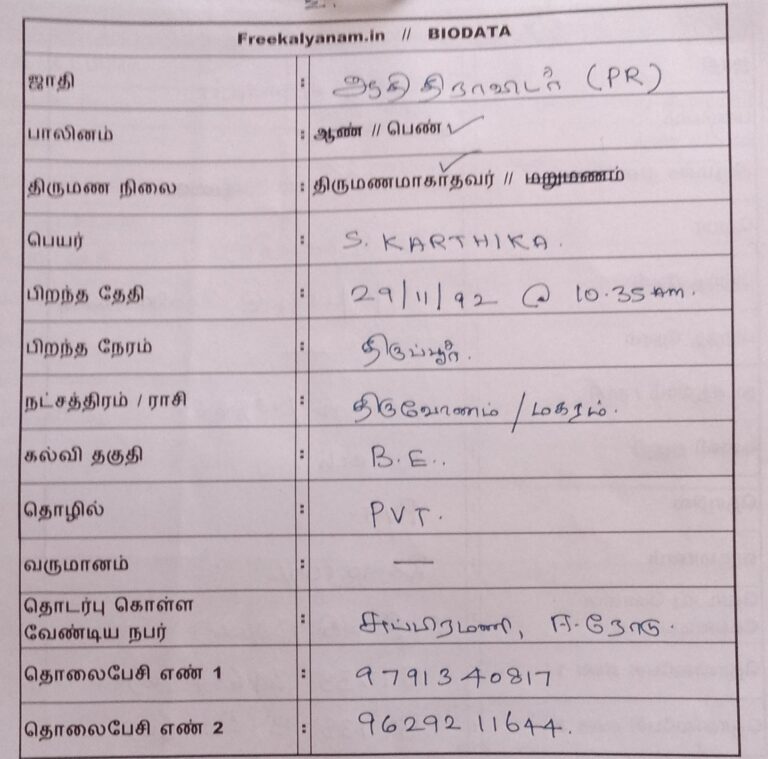 Freekalyanam.in // BIODATA
ஜாதி : ஆதி திராவிடர் (PR)
பாலினம் : ஆண் // பெண் ✓
திருமண நிலை : திருமணமாகாதவர் // மறுமணம்
பெயர் : S. KARTHIKA.
பிறந்த தேதி : 29/11/92 @ 10.35 AM.
பிறந்த நேரம் : திருப்பூர்.
நட்சத்திரம் / ராசி : திருவோணம் / மகரம்.
கல்வி தகுதி : B.E..
தொழில் : PVT.
வருமானம் : —
தொடர்பு கொள்ள
வேண்டிய நபர் : சுப்பிரமணி, ஈ.ரோடு.
தொலைபேசி எண் 1 : 97913 40817
தொலைபேசி எண் 2 : 96292 11644.